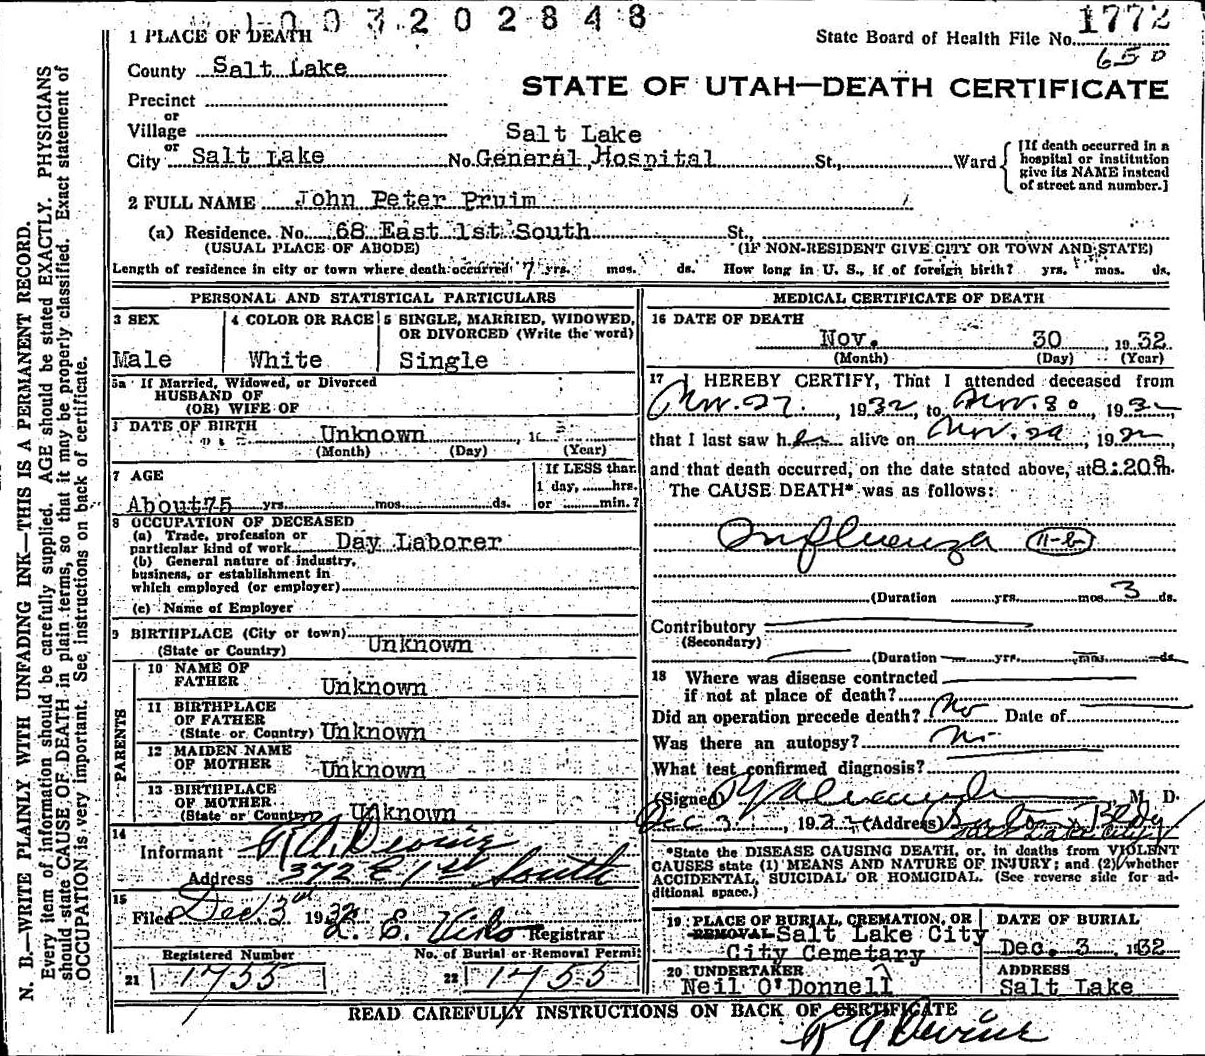 1003202848
1772
State Board of Health File No.
650
1 PLACE OF DEATH
County Salt Lake
STATE OF UTAH—DEATH CERTIFICATE
Precinct
or
Village
Salt Lake
or
City Salt Lake No. General Hospital St., Ward
[If death occurred in a hospital or institution give its NAME instead of street and number.]
2 FULL NAME John Peter Pruim
(a) Residence. No. 68 East 1st South St.,
(USUAL PLACE OF ABODE) (IF NON-RESIDENT GIVE CITY OR TOWN AND STATE)
Length of residence in city or town where death occurred 7 yrs. mos. ds. How long in U. S., if of foreign birth? yrs. mos. ds.
PERSONAL AND STATISTICAL PARTICULARS
3 SEX 4 COLOR OR RACE 5 SINGLE, MARRIED, WIDOWED, OR DIVORCED (Write the word)
Male White Single
5a If Married, Widowed, or Divorced
HUSBAND OF
(OR) WIFE OF
DATE OF BIRTH
Unknown
(Month) (Day) (Year)
7 AGE
If LESS than
1 day, hrs.
About 75 yrs. mos. ds. or min.?
8 OCCUPATION OF DECEASED
(a) Trade, profession or
particular kind of work Day Laborer
(b) General nature of industry,
business, or establishment in
which employed (or employer)
(c) Name of Employer
9 BIRTHPLACE (City or town)
(State or Country) Unknown
PARENTS
10 NAME OF
FATHER Unknown
11 BIRTHPLACE
OF FATHER
(State or Country) Unknown
12 MAIDEN NAME
OF MOTHER Unknown
13 BIRTHPLACE
OF MOTHER
(State or Country) Unknown
14
Informant R A Devine
Address 372 E 1st South
15
Filed Dec. 3 1932 Registrar
Registered Number No. of Burial or Removal Permit
21 1755 22 1755
MEDICAL CERTIFICATE OF DEATH
16 DATE OF DEATH
Nov. 30 1932
(Month) (Day) (Year)
17 I HEREBY CERTIFY, That I attended deceased from
Nov. 27, 1932, to Nov. 30, 1932,
that I last saw h alive on Nov. 29, 1932
and that death occurred, on the date stated above, at 8:20 a m.
The CAUSE DEATH* was as follows:
Influenza 11-b
(Duration yrs. mos. 3 ds.
Contributory
(Secondary)
(Duration yrs. mos. ds.
18 Where was disease contracted
if not at place of death?
Did an operation precede death? No Date of
Was there an autopsy? no
What test confirmed diagnosis?
(Signed) M. D.
Dec 3, 1932 (Address) Bldg
*State the DISEASE CAUSING DEATH, or, in deaths from VIOLENT
CAUSES state (1) MEANS AND NATURE OF INJURY; and (2) whether
ACCIDENTAL, SUICIDAL OR HOMICIDAL. (See reverse side for ad-
ditional space.)
19 PLACE OF BURIAL, CREMATION, OR DATE OF BURIAL
REMOVAL Salt Lake City
City Cemetary Dec. 3, 1932
20 UNDERTAKER ADDRESS
Neil O'Donnell Salt Lake
READ CAREFULLY INSTRUCTIONS ON BACK OF CERTIFICATE
R A Devine
N. B.—WRITE PLAINLY WITH UNFADING INK—THIS IS A PERMANENT RECORD.
Every item of information should be carefully supplied. AGE should be stated EXACTLY. PHYSICIANS
should state CAUSE OF DEATH in plain terms, so that it may be properly classified. Exact statement of
OCCUPATION is very important. See instructions on back of certificate.